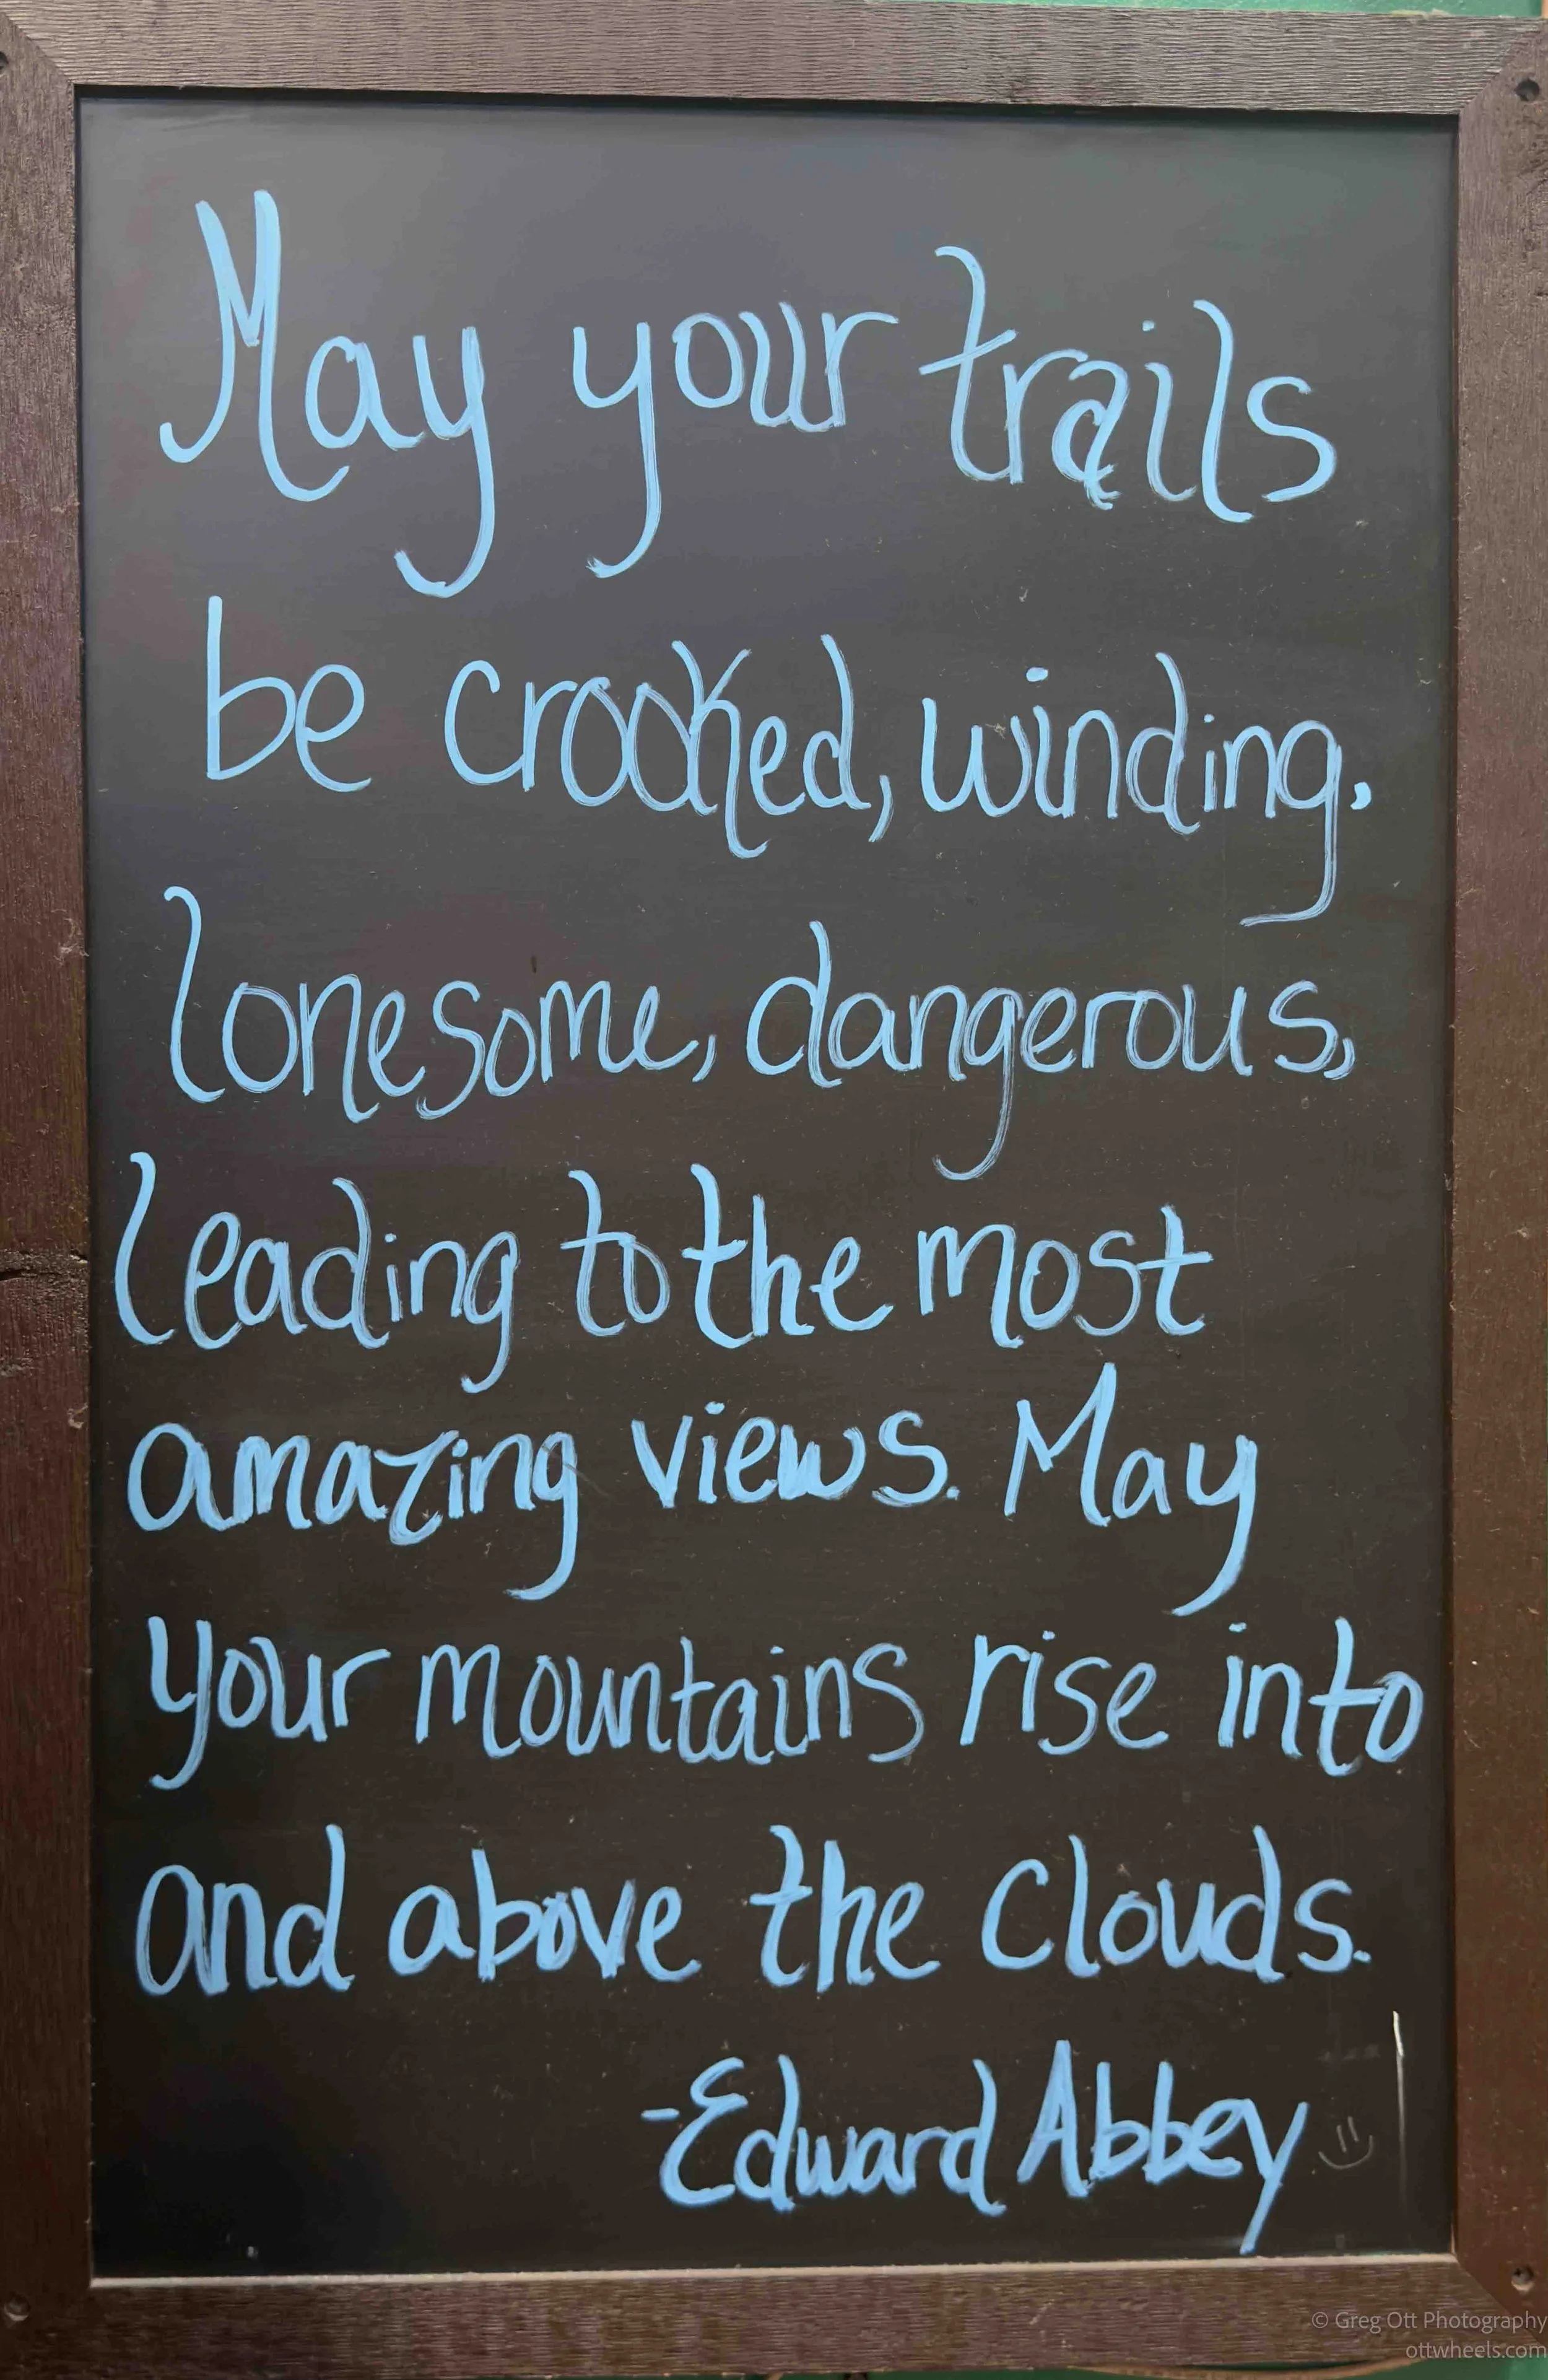 May your trails
be crooked, winding,
lonesome, dangerous,
leading to the most
amazing views. May
your mountains rise into
and above the clouds.
-Edward Abbey
© Greg Ott Photography
ottwheels.com